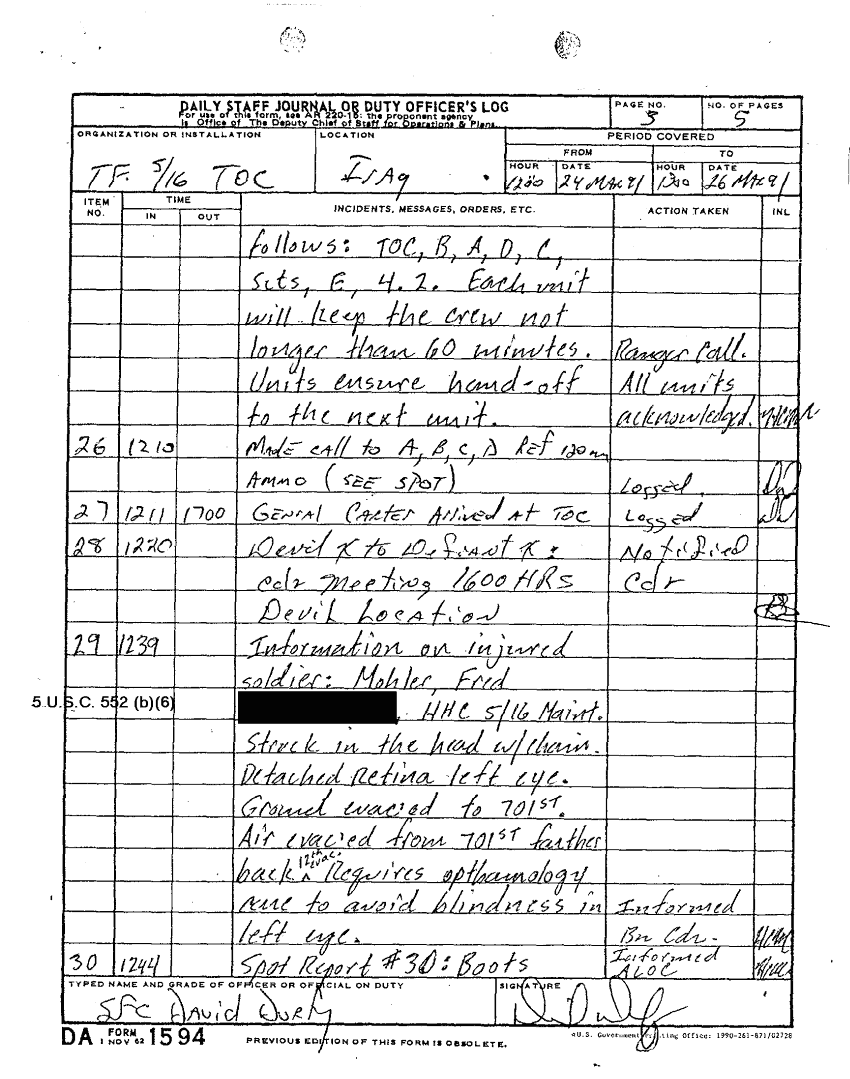 DAILY STAFF JOURNAL OR DUTY OFFICER'S LOG
For use of this form, see AR 220-15; the proponent agency
is Office of The Deputy Chief of Staff for Operations & Plans.
PAGE NO.
3
NO. OF PAGES
5
ORGANIZATION OR INSTALLATION
TF. 5/16 TOC
LOCATION
IrAq
PERIOD COVERED
FROM
TO
HOUR
1200
DATE
24 MAR 91
HOUR
DATE
26 MAR 91
ITEM NO.
TIME
IN
OUT
INCIDENTS, MESSAGES, ORDERS, ETC.
ACTION TAKEN
INL
follows: TOC, B, A, D, C,
Scts, E, 4.2. Each unit
will keep the crew not
longer than 60 minutes. Ranger Call.
Units ensure hand-off All units
to the next unit. acknowledged.
26 1210 MADE CALL to A, B, C, D REF 120mm
AMMO (SEE SPOT) Logged
27 1211 1700 GENERAL CARTER ARRIVED AT TOC Logged
28 1220 Devil X to Defiant X: Notified
cdr meeting 1600 HRS Cdr
Devil Location
29 1239 Information on injured
soldier: Mohler, Fred
5 U.S.C. 552 (b)(6)
HHC 5/16 Maint.
Struck in the head w/chain.
Detached Retina left eye.
Ground evac'ed to 701ST.
Air evac'ed from 701ST farther
back 12th evac. Requires opthamology
care to avoid blindness in Informed
left eye. Bn Cdr.
30 1244 Spot Report #30: Boots Informed ALOC
TYPED NAME AND GRADE OF OFFICER OR OFFICIAL ON DUTY
SFC DAVID
SIGNATURE
DA FORM 1594
1 NOV 62
PREVIOUS EDITION OF THIS FORM IS OBSOLETE.
U.S. Government Printing Office: 1990-261-871/02728